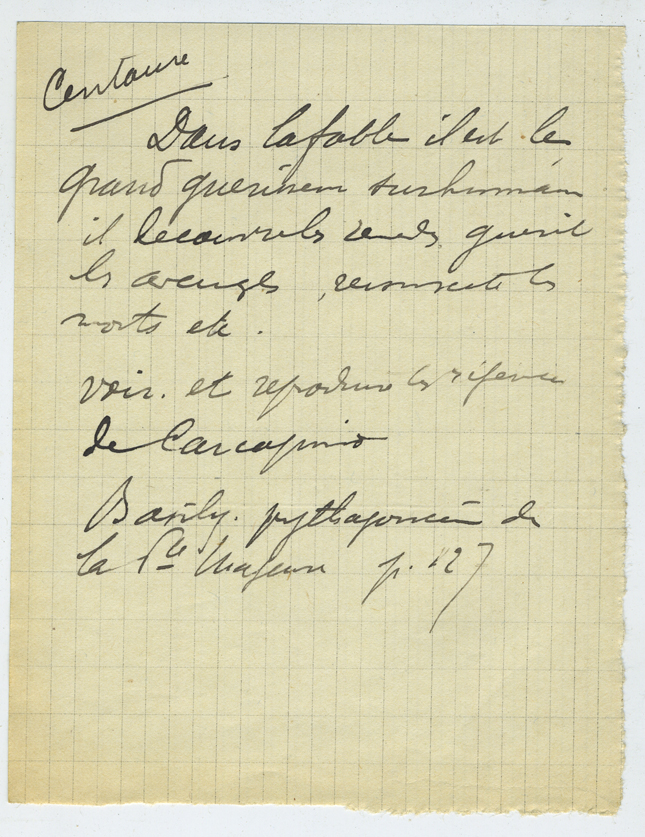 Centaure
Dans la fable il est le
grand guerisseur surhumain
il decouvre les remedes guerit
les aveugles, ressuscite les
morts etc.
voir. et reproduire les references
de Carcopino
Basiliq. pythagoricienne de
la Pte Majeure p. 127